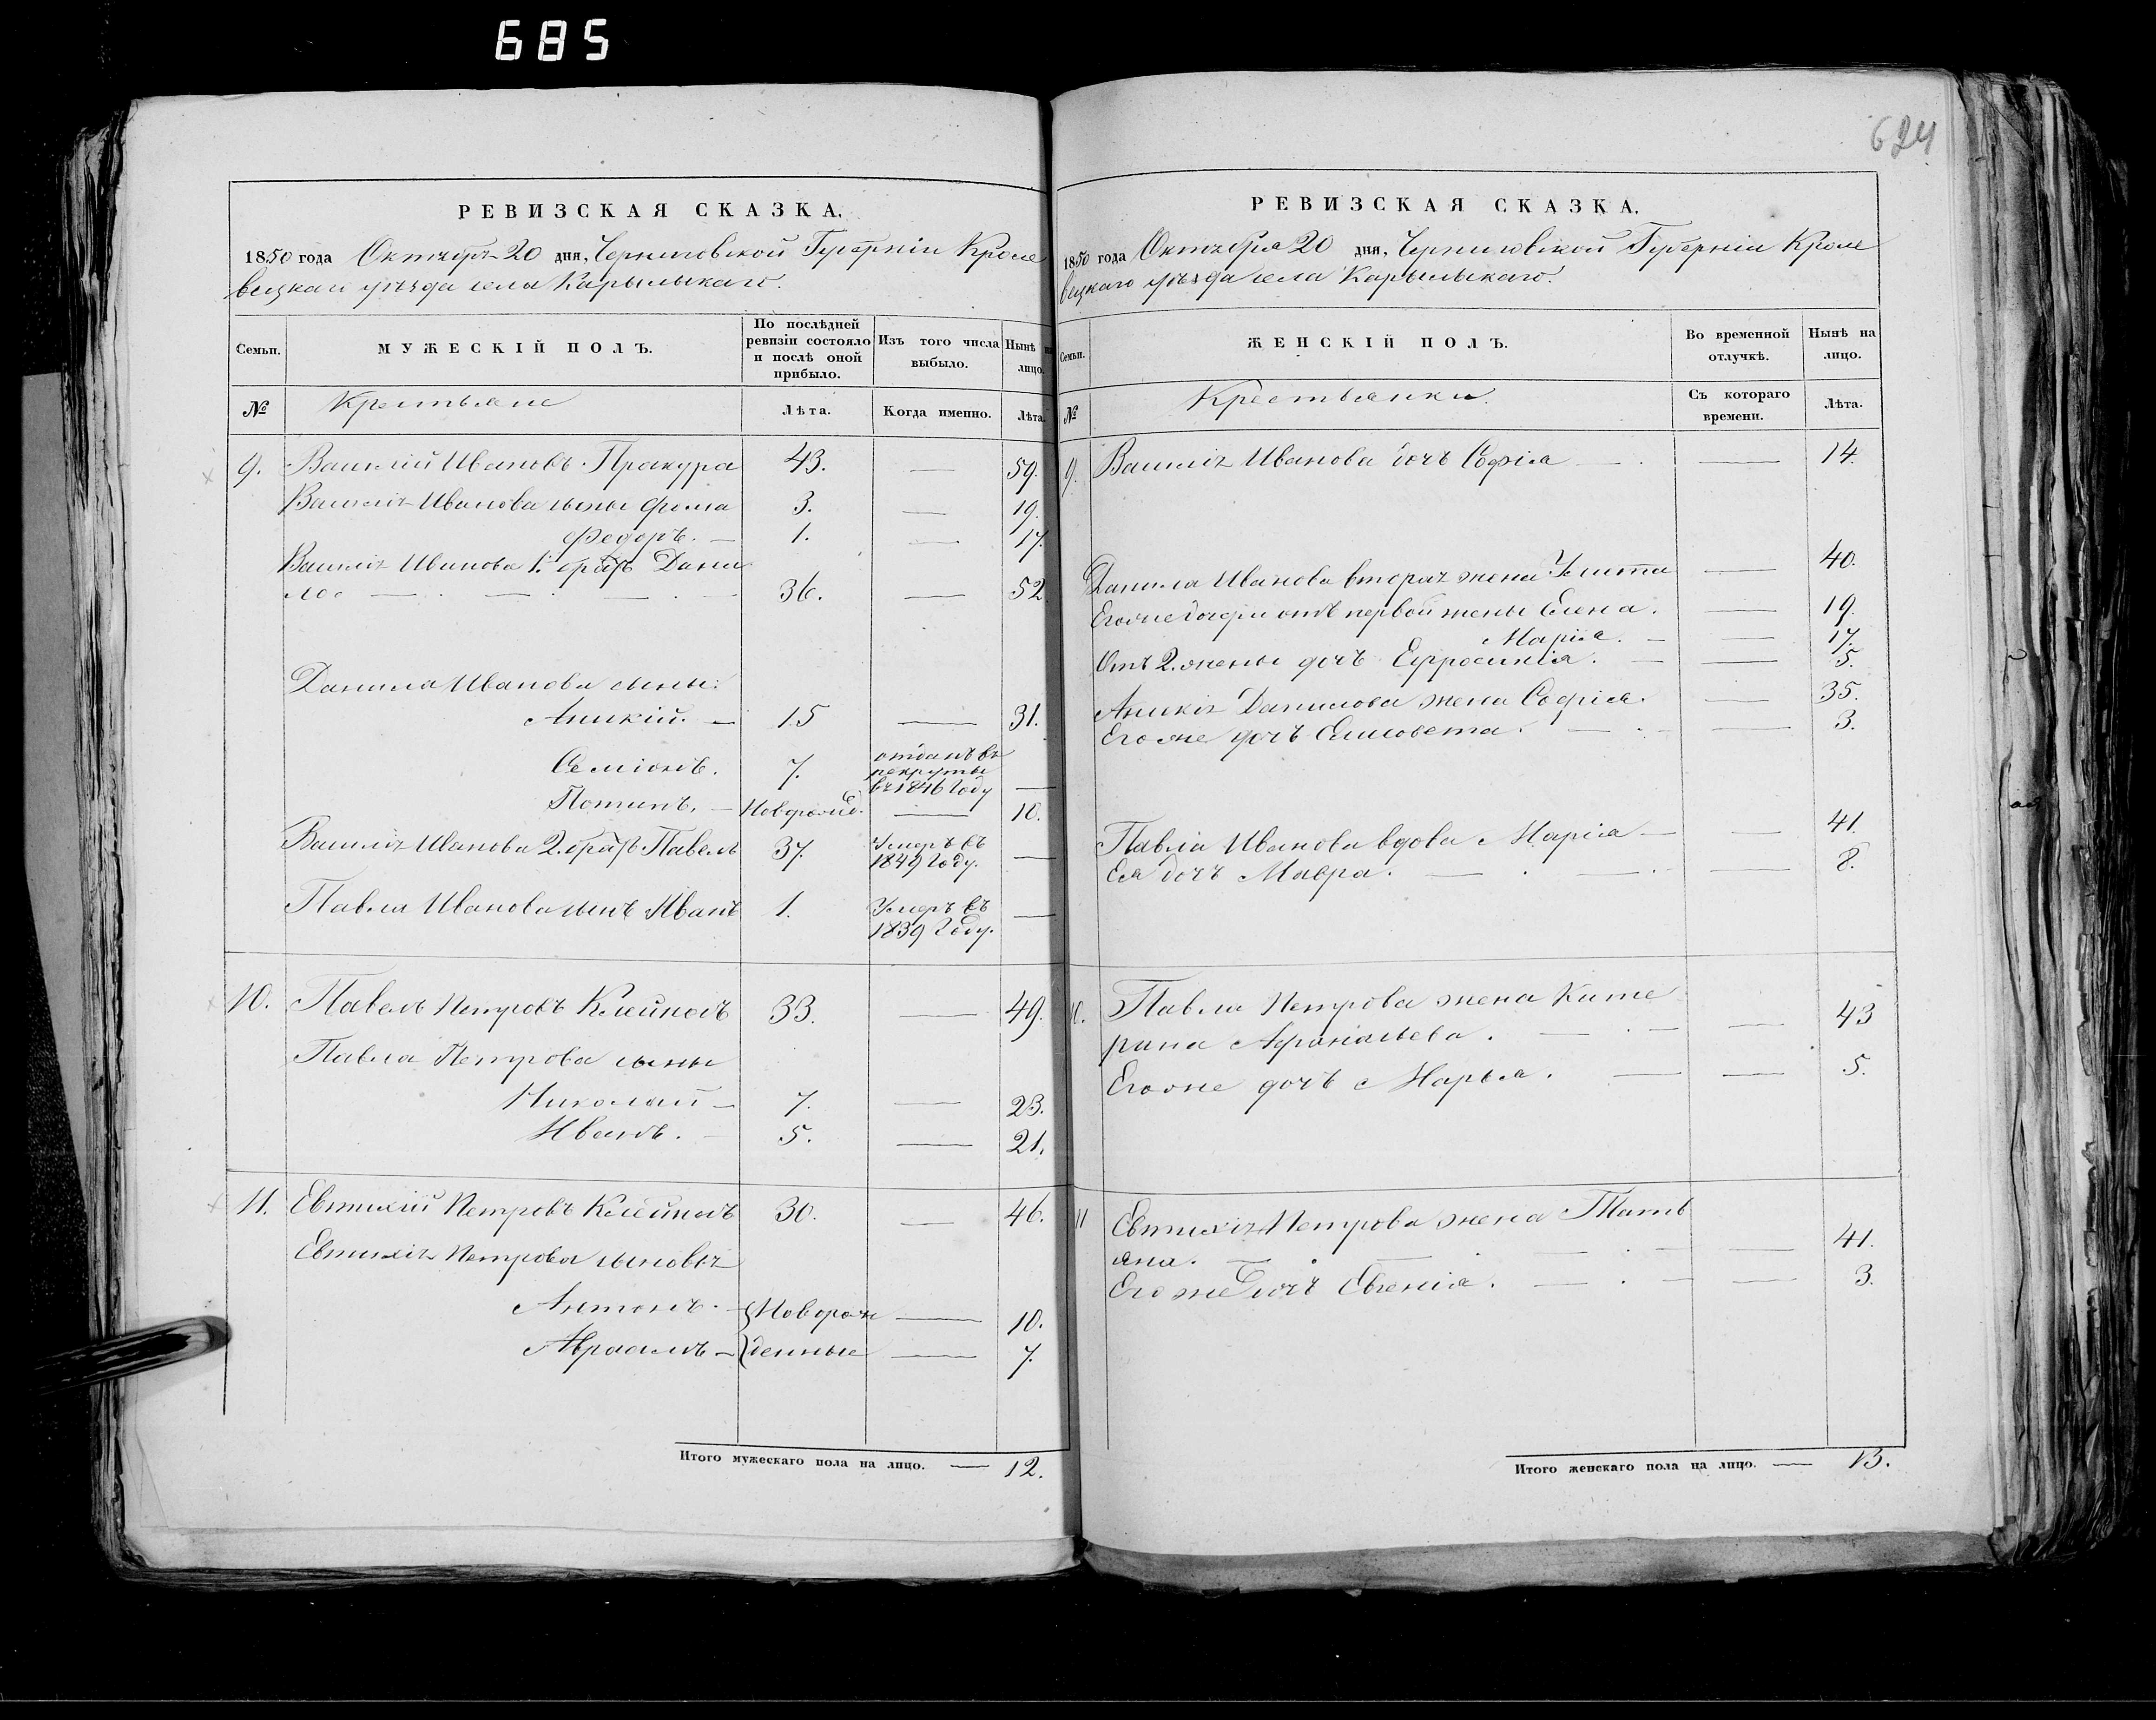 685
624
РЕВИЗСКАЯ СКАЗКА.
1850 года Октября 20 дня, Черниговской Губерніи Кроле
вецкаго уѣзда села Карыльскаго.
Семьи. МУЖЕСКІЙ ПОЛЪ. По послѣдней ревизіи состояло и послѣ оной прибыло. Изъ того числа выбыло. Нынѣ на лицо.
№ Крестьяне Лѣта. Когда именно. Лѣта.
9. Василій Ивановъ Пракура 43. — 59.
Василія Иванова сыны Фома 3. — 19.
Федоръ. — 1. — 17.
Василія Иванова 1. братъ Дани
ло — 36. — 52.
Данила Иванова сыны:
Аникій. — 15 — 31.
Семіонъ. 7. отданъ въ
рекруты
въ 1846 году —
Потапъ. — Новорожд. — 10.
Василія Иванова 2. братъ Павелъ 37. Умеръ въ
1849 году. —
Павла Иванова сынъ Иванъ 1. Умеръ въ
1839 году. —
10. Павелъ Петровъ 33. — 49.
Павла Петрова сыны
Николай — 7. — 23.
Иванъ. — 5. — 21.
11. Евтихій Петровъ 30. — 46.
Евтихія Петрова сыновья
Антонъ. — Новорож — 10.
Авраамъ — денные — 7.
Итого мужескаго пола на лицо. — 12.
РЕВИЗСКАЯ СКАЗКА.
1850 года Октября 20 дня, Черниговской Губерніи Кроле
вецкаго уѣзда села Карыльскаго.
Семьи. ЖЕНСКІЙ ПОЛЪ. Во временной отлучкѣ. Нынѣ на лицо.
№ Крестьянки. Съ котораго времени. Лѣта.
9. Василія Иванова дочь Софія — — 14.
Данила Иванова вторая жена Улита — 40.
Егоже дочери отъ первой жены Елена. — 19.
Марія. — — 17.
Отъ 2. жены дочь Ефросинія. — — 5.
Аникія Данилова жена Софія. — 35.
Его же дочь Елисовета. — — 3.
Павла Иванова вдова Марія — — 41.
Ея дочь Мавра. — — — 8.
10. Павла Петрова жена Кате
рина Афанасьева. — — — 43
Егоже дочь Марья. — — 5.
11 Евтихія Петрова жена Тать
яна. — — — — 41.
Его же дочь Евгенія. — — — 3.
Итого женскаго пола на лицо. — 13.